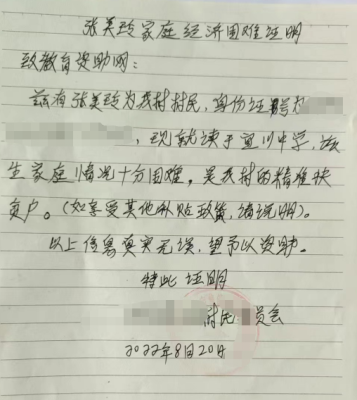 张美玲家庭经济困难证明
致教育资助网：
兹有张美玲为我村村民，身份证号为
，现就读于宜川中学，该
生家庭情况十分困难，是我村的精准扶
贫户。（如享受其他补贴政策，请说明）。
以上信息真实无误，望予以资助。
特此证明
村民 员会
2022年8月20日